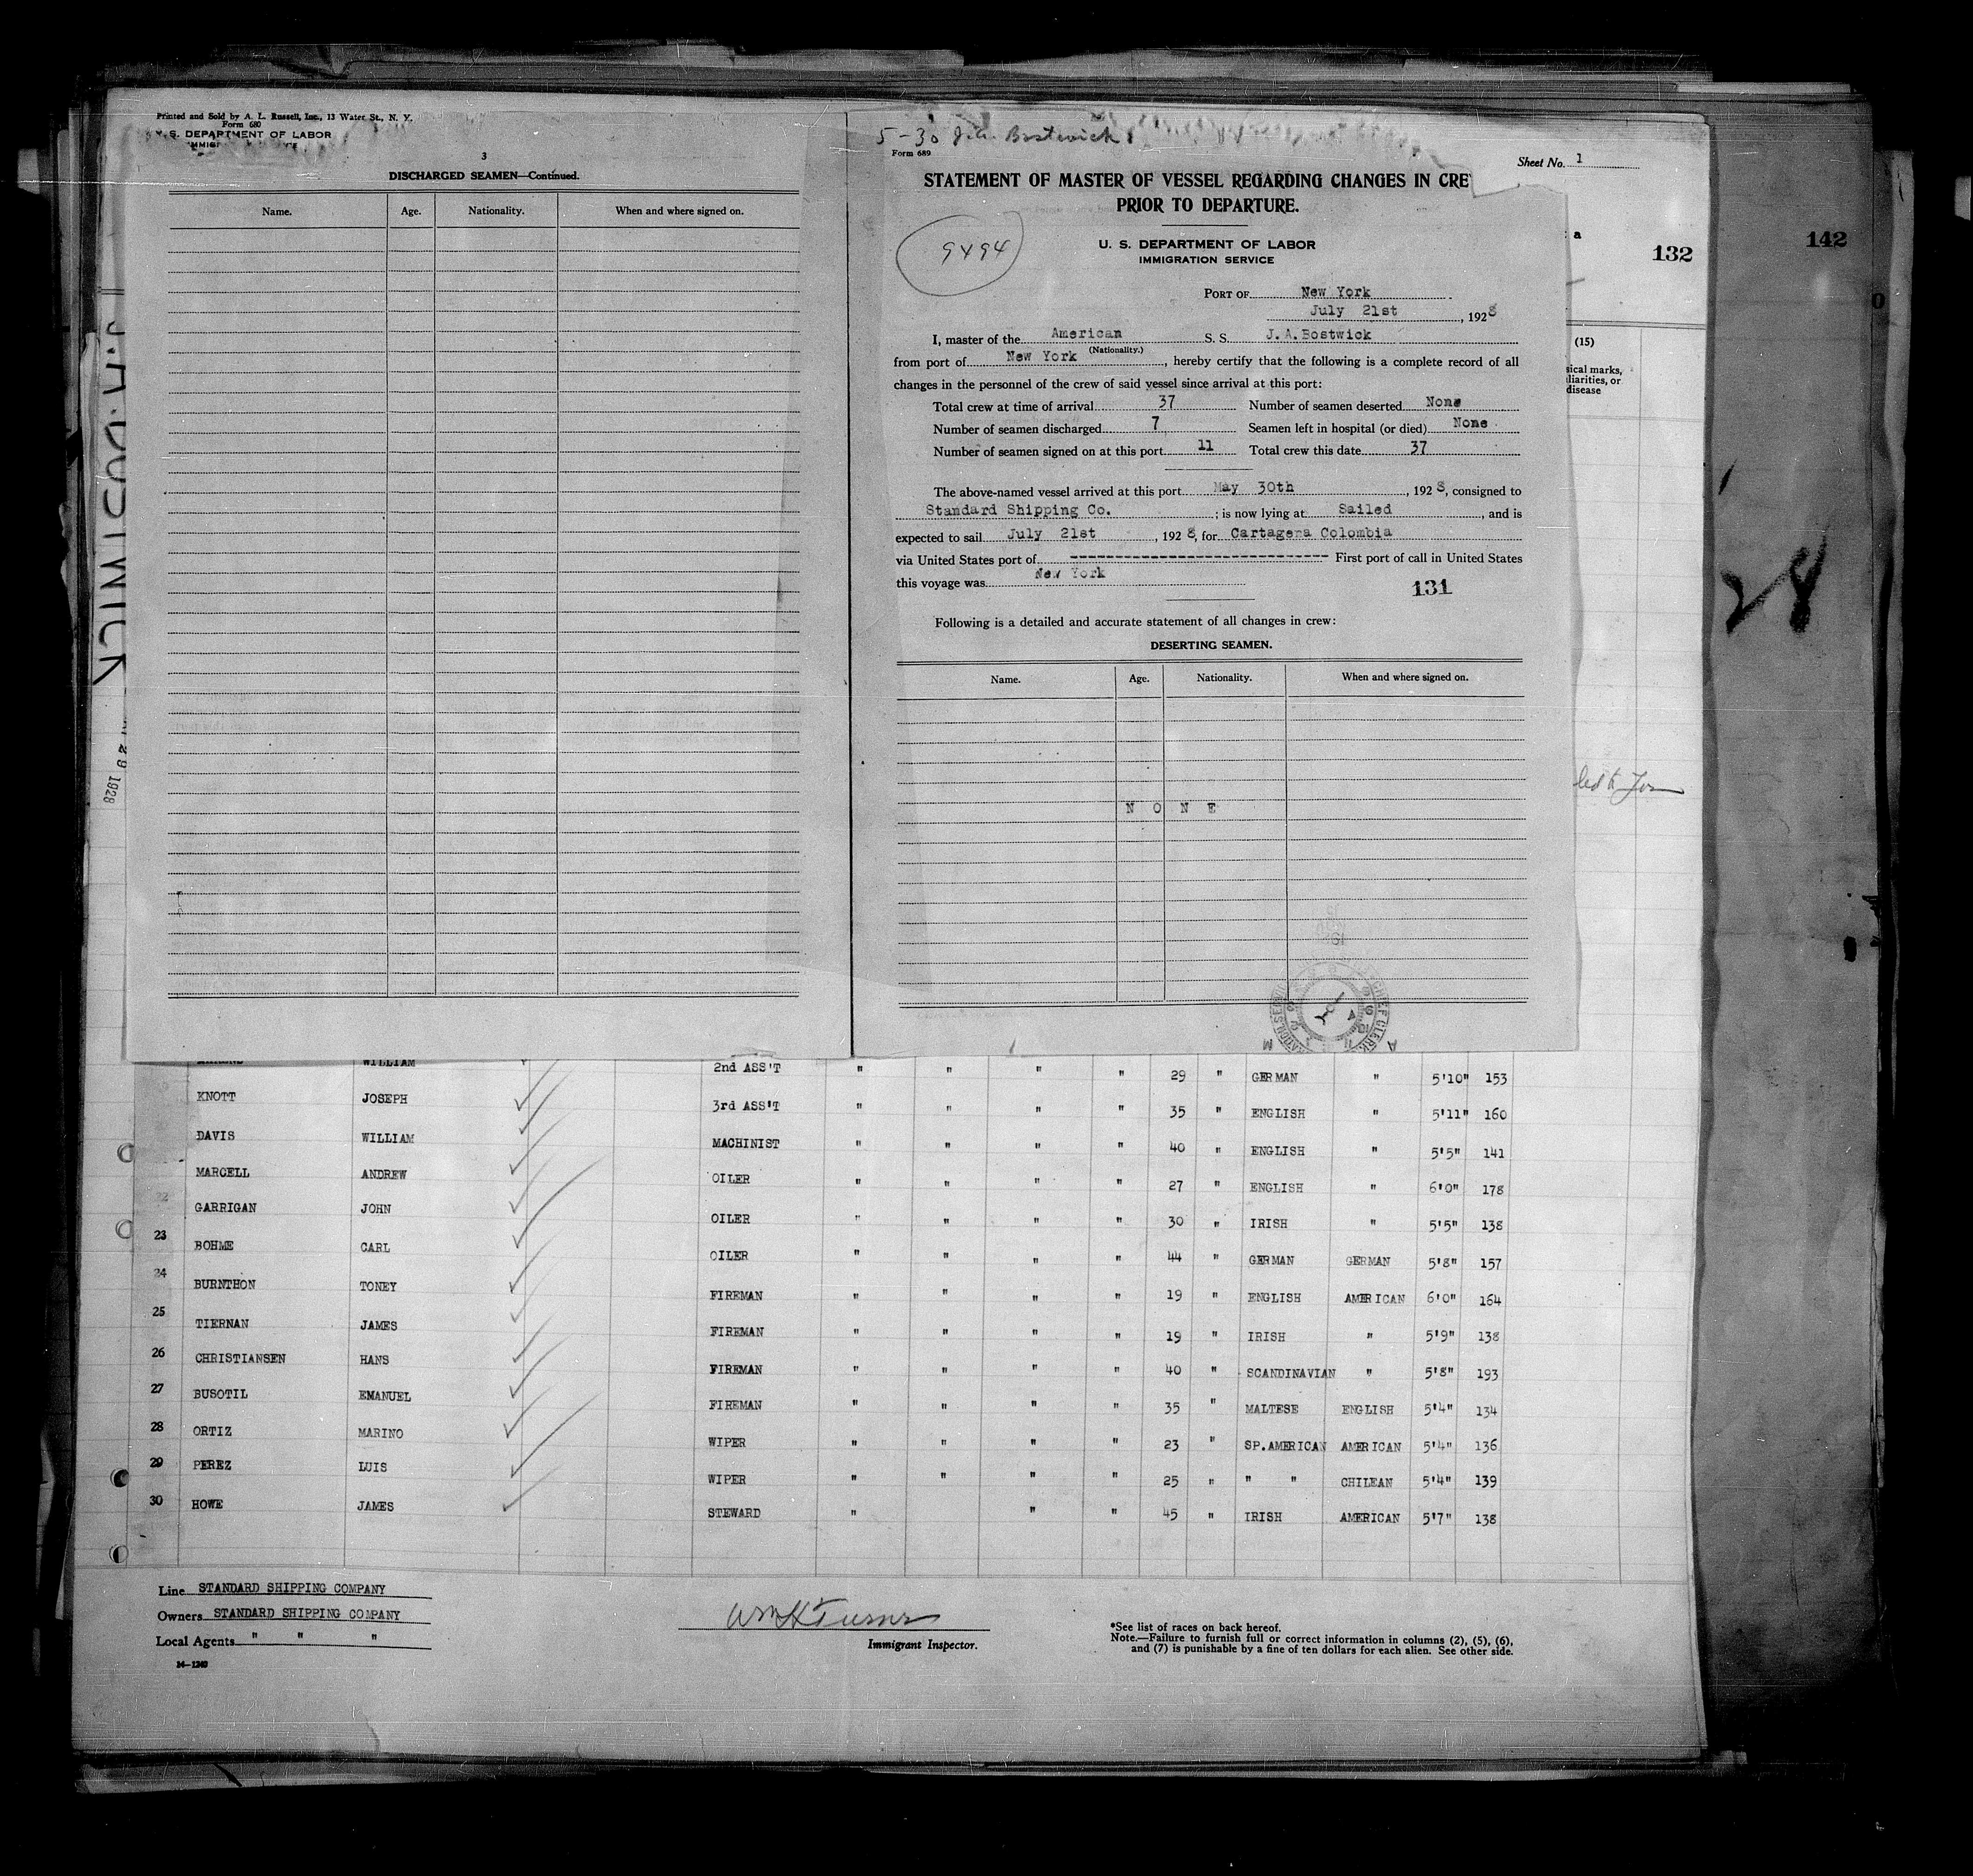 Printed and Sold by A. L. Russell, Inc., 13 Water St., N. Y.
Form 680
U. S. DEPARTMENT OF LABOR
3
DISCHARGED SEAMEN—Continued.
Name. Age. Nationality. When and where signed on.
5-30 J.A. Bostwick
Form 689
Sheet No. 1
STATEMENT OF MASTER OF VESSEL REGARDING CHANGES IN CRE
PRIOR TO DEPARTURE.
9494
U. S. DEPARTMENT OF LABOR
IMMIGRATION SERVICE
a
132
142
PORT OF New York
July 21st, 1928
I, master of the American S. S. J.A.Bostwick
(Nationality.)
from port of New York, hereby certify that the following is a complete record of all
changes in the personnel of the crew of said vessel since arrival at this port:
Total crew at time of arrival 37 Number of seamen deserted None
Number of seamen discharged 7 Seamen left in hospital (or died) None
Number of seamen signed on at this port 11 Total crew this date 37
The above-named vessel arrived at this port May 30th, 1928, consigned to
Standard Shipping Co.; is now lying at Sailed, and is
expected to sail July 21st, 1928, for Cartagena Colombia
via United States port of ---------------------------- First port of call in United States
this voyage was New York
131
Following is a detailed and accurate statement of all changes in crew:
DESERTING SEAMEN.
Name. Age. Nationality. When and where signed on.
N O N E
(15)
sical marks,
liarities, or
disease
28
J.A. BOSTWICK
1928
CHIEF CLERK
WILLIAM 2nd ASS'T " " " " 29 " GERMAN " 5'10" 153
KNOTT JOSEPH 3rd ASS'T " " " " 35 " ENGLISH " 5'11" 160
DAVIS WILLIAM MACHINIST " " " " 40 " ENGLISH " 5'5" 141
MARCELL ANDREW OILER " " " " 27 " ENGLISH " 6'0" 178
22 GARRIGAN JOHN OILER " " " " 30 " IRISH " 5'5" 138
23 BOHME CARL OILER " " " " 44 " GERMAN GERMAN 5'8" 157
24 BURNTHON TONEY FIREMAN " " " " 19 " ENGLISH AMERICAN 6'0" 164
25 TIERNAN JAMES FIREMAN " " " " 19 " IRISH " 5'9" 138
26 CHRISTIANSEN HANS FIREMAN " " " " 40 " SCANDINAVIAN " 5'8" 193
27 BUSOTIL EMANUEL FIREMAN " " " " 35 " MALTESE ENGLISH 5'4" 134
28 ORTIZ MARINO WIPER " " " " 23 " SP.AMERICAN AMERICAN 5'4" 136
29 PEREZ LUIS WIPER " " " " 25 " " " CHILEAN 5'4" 139
30 HOWE JAMES STEWARD " " " 45 " IRISH AMERICAN 5'7" 138
Line STANDARD SHIPPING COMPANY
Owners STANDARD SHIPPING COMPANY
Local Agents " " "
14—1240
Wm H Turner
Immigrant Inspector.
*See list of races on back hereof.
Note.—Failure to furnish full or correct information in columns (2), (5), (6),
and (7) is punishable by a fine of ten dollars for each alien. See other side.